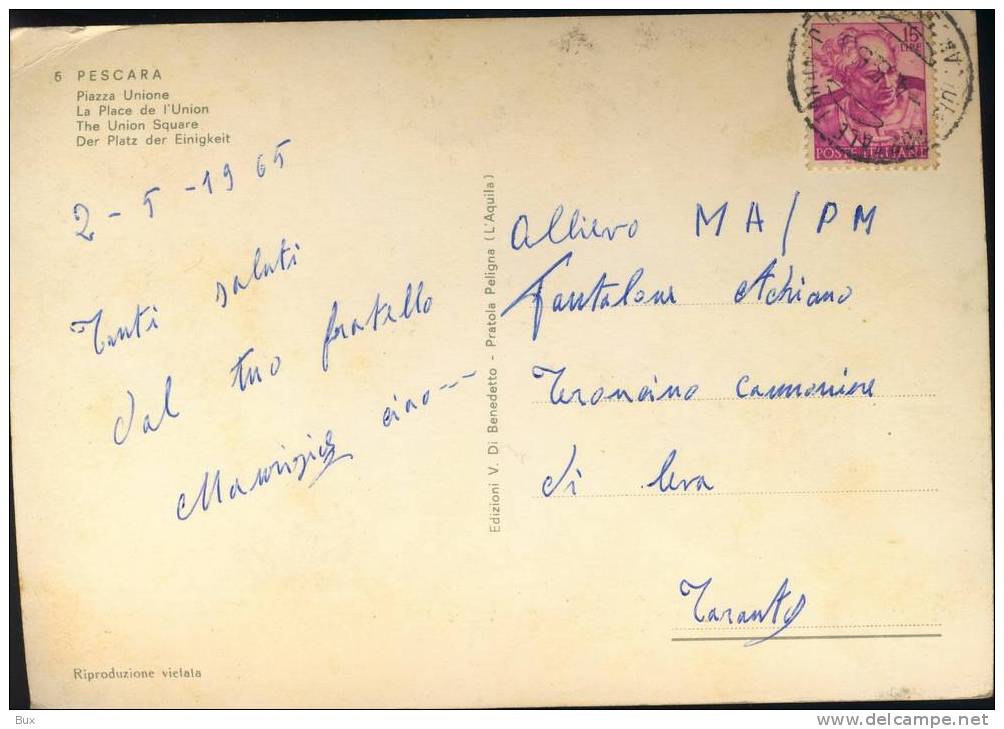 6 PESCARA
Piazza Unione
La Place de l'Union
The Union Square
Der Platz der Einigkeit
2-5-1965
Tanti saluti
dal tuo fratello
Maurizio ciao---
Edizioni V. Di Benedetto - Pratola Peligna (L'Aquila)
15
LIRE
POSTE ITALIANE
Allievo MA/PM
Fantalone
di leva
Taranto
Riproduzione vietata
Bux
www.delcampe.net